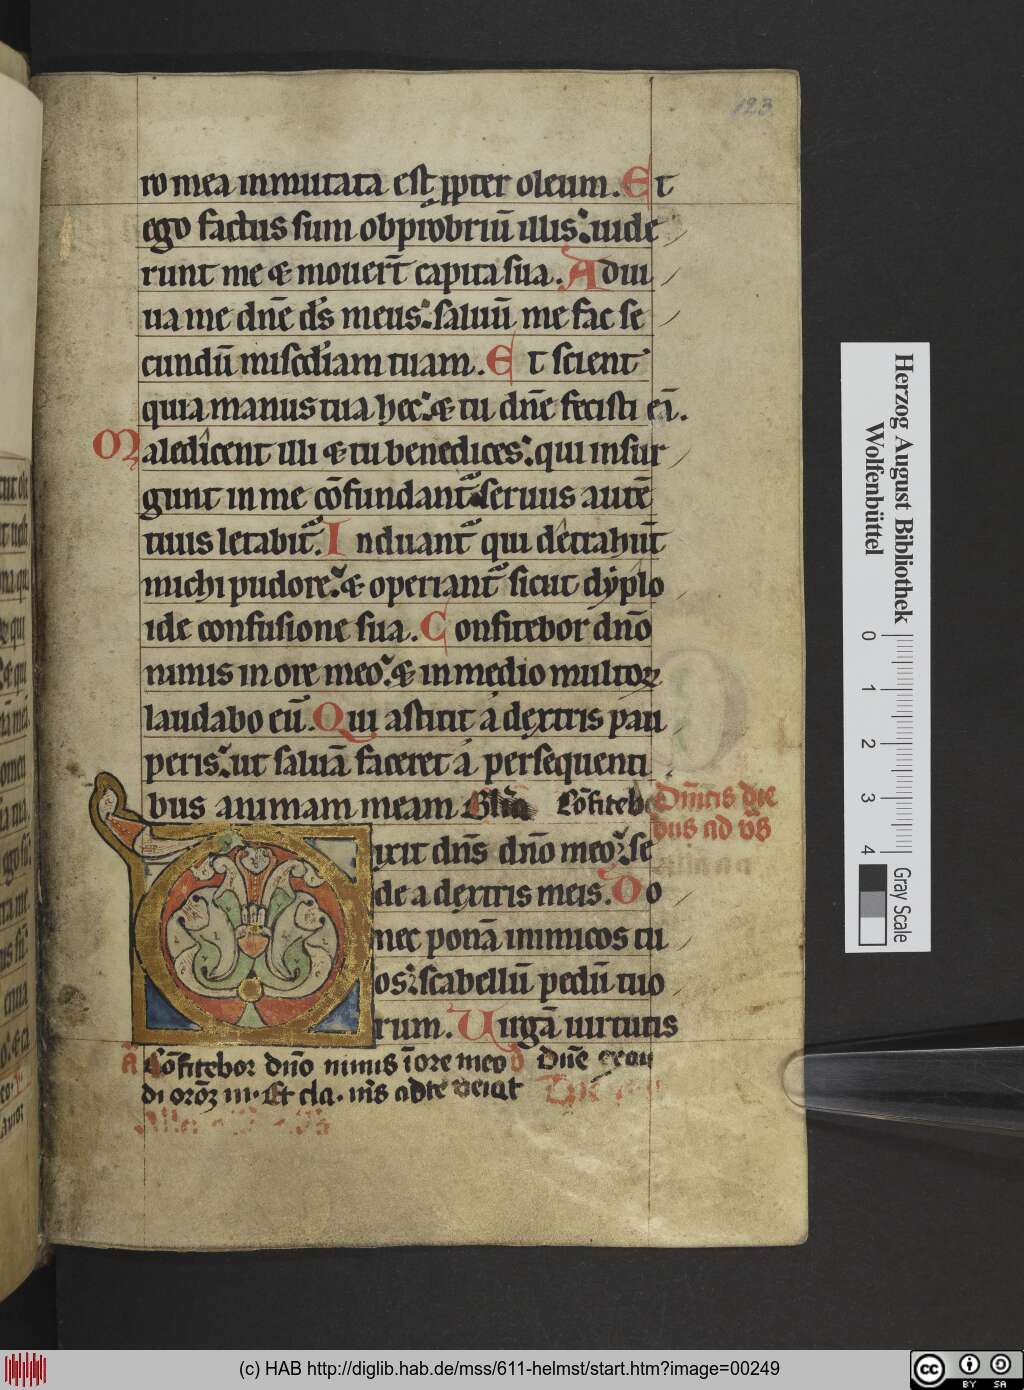 123
ro mea inmutata est ꝓpter oleum. Et
ego factus sum obprobriū illis: uide
runt me & mouer̄t capita sua. Adiu
ua me dn̄e ds̄ meus: saluū me fac se
cundū misc̄diam tuam. Et scient
quia manus tua hec: & tu dn̄e fecisti eā.
Maledicent illi & tu benedices: qui insur
gunt in me cōfundant᷑ seruus autē
tuus letabit᷑. Induant᷑ qui detrahūt
michi pudore: & operiant᷑ sicut dyplo
ide confusione sua. Confitebor dn̄o
nimis in ore meo: & in medio multoꝝ
laudabo eū. Qui astitit a dextris pau
peris: ut saluā faceret a persequenti
bus animam meam. Gl̄ia Cōfiteb
Dn̄icis die
bus ad vs̄
Dixit dn̄s dn̄o meo: se
de a dextris meis. Do
nec ponā inimicos tu
os: scabellū pedū tuo
rum. Uirgā uirtutis
a Cōfitebor dn̄o nimis ī ore meo v Dn̄e exau
di orōꝫ m. Et cla. m̄s ad te veiat
Herzog August Bibliothek
Wolfenbüttel
0 1 2 3 4
Gray Scale
(c) HAB http://diglib.hab.de/mss/611-helmst/start.htm?image=00249
cc BY SA